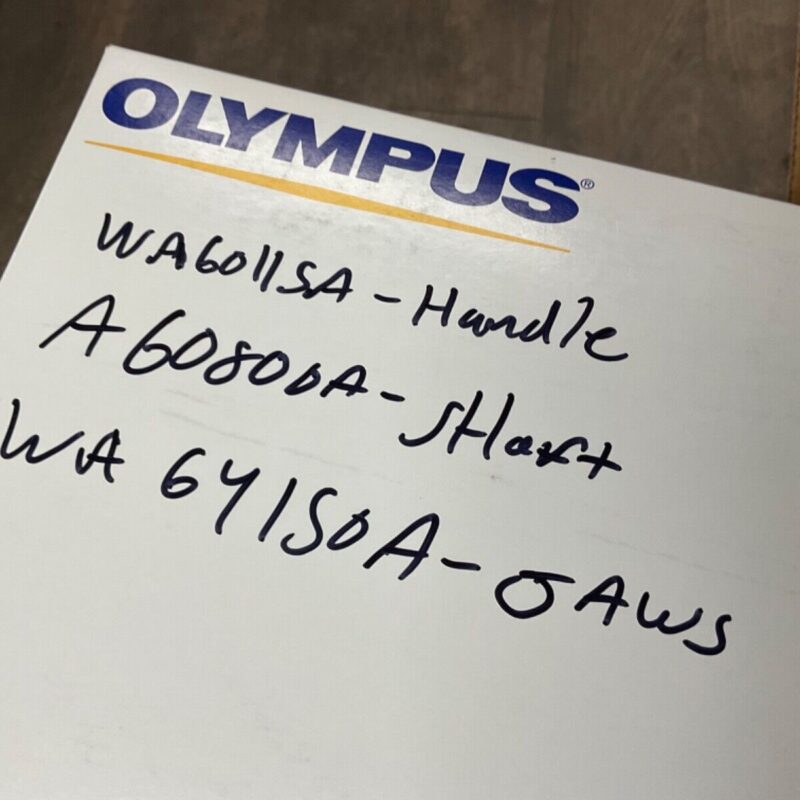 OLYMPUS®
WA6011SA - Handle
A60800A - SHaft
WA 64150A - JAWS